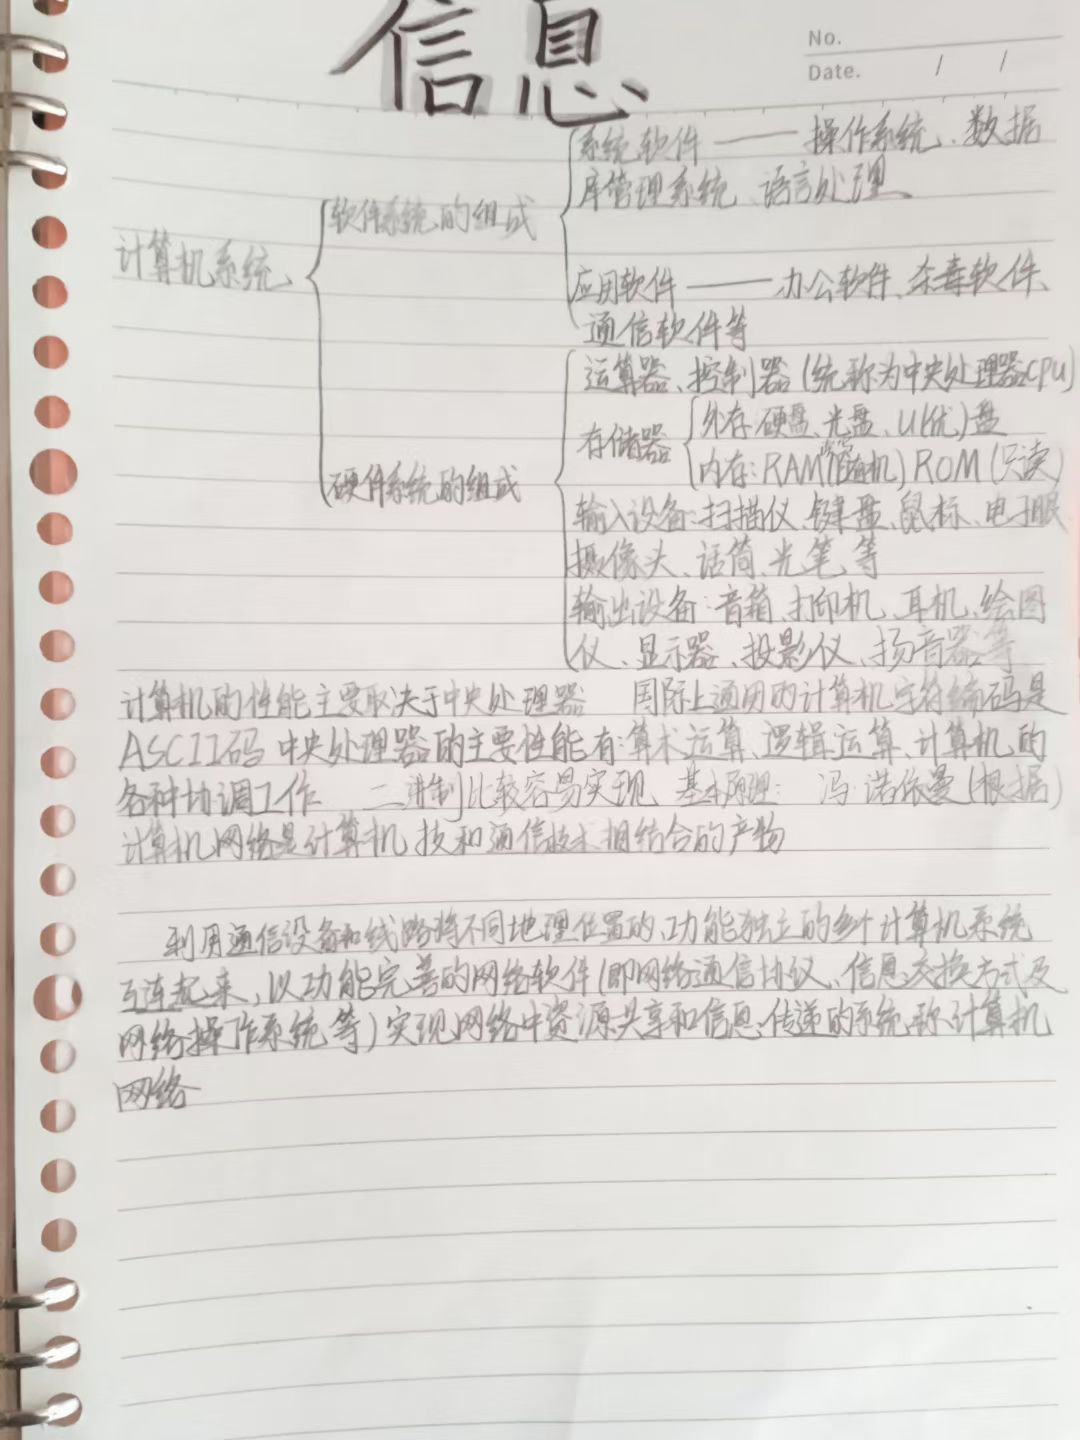 信息
No.
Date. / /
系统软件 —— 操作系统、数据
库管理系统、语言处理、
软件系统的组成
计算机系统
应用软件 —— 办公软件、杀毒软件、
通信软件等
运算器、控制器(统称为中央处理器CPU)
存储器
外存:硬盘、光盘、U(优)盘
内存:RAM(随机) ROM(只读)
硬件系统的组成
输入设备:扫描仪、键盘、鼠标、电子眼
摄像头、话筒、光笔、等
输出设备:音箱、打印机、耳机、绘图
仪、显示器、投影仪、扬音器等
计算机的性能主要取决于中央处理器 国际上通用的计算机字符编码是
ASCII码 中央处理器的主要性能有:算术运算、逻辑运算、计算机的
各种协调工作 二进制比较容易实现 基本原理: 冯·诺依曼(根据)
计算机网络是计算机技和通信技术相结合的产物
利用通信设备和线路将不同地理位置的、功能独立的多个计算机系统
互连起来,以功能完善的网络软件(即网络通信协议、信息交换方式及
网络操作系统等)实现网络中资源共享和信息传递的系统,称计算机
网络